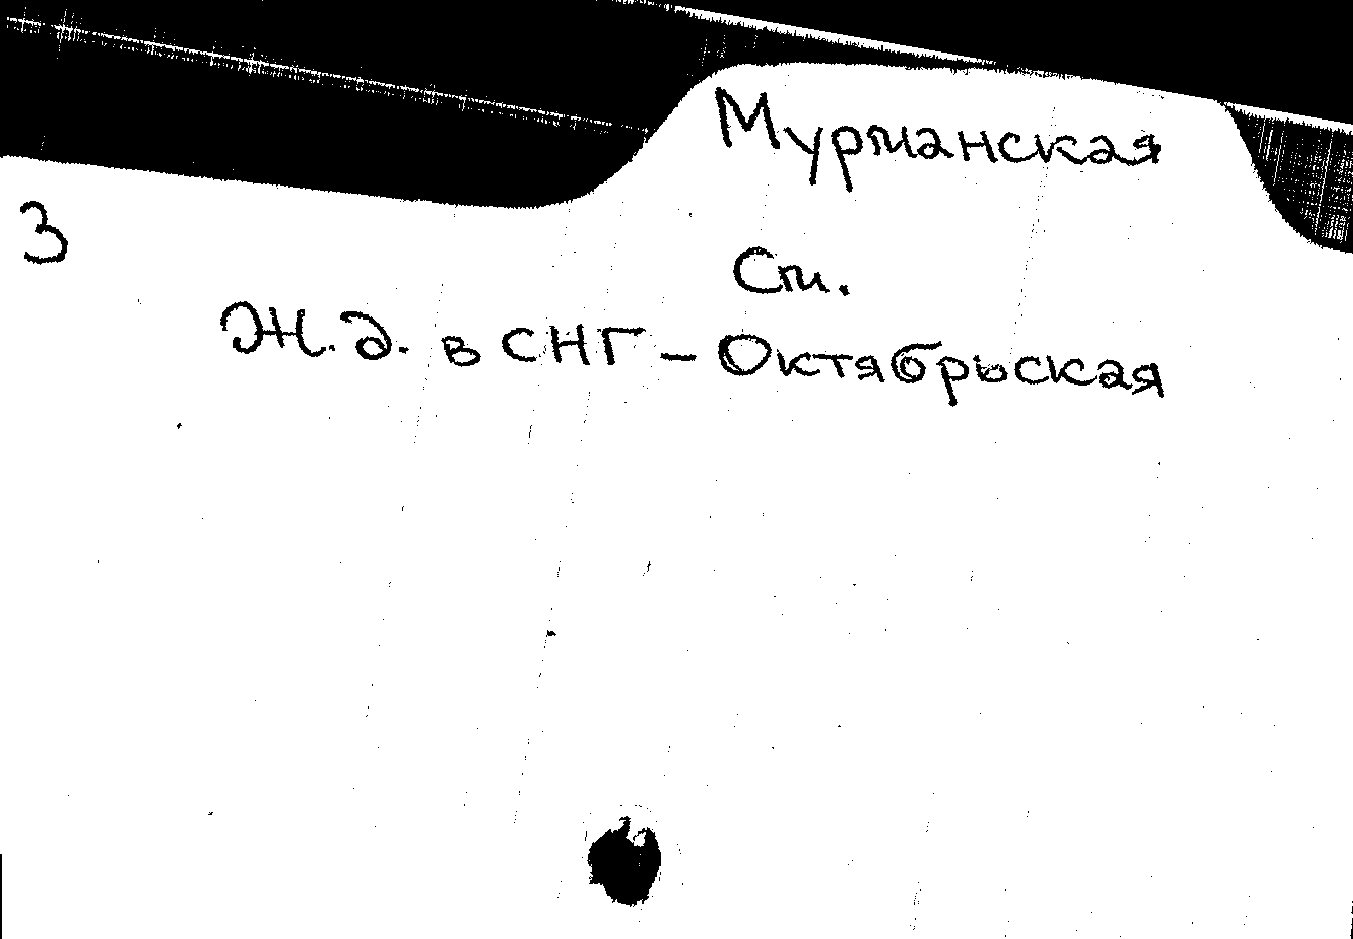 Мурманская
3
См.
Ж.д. в СНГ – Октябрьская